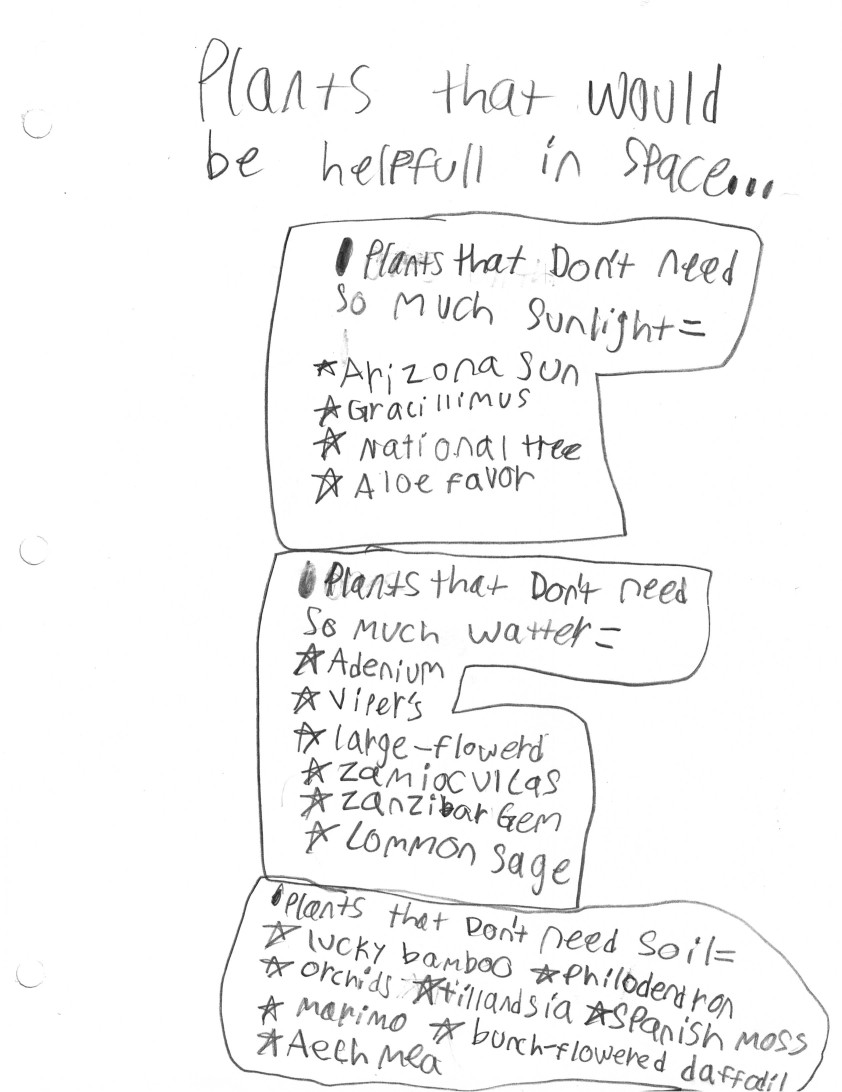 Plants that would
be helpfull in space...
Plants that Don't need
so much sunlight=
Arizona sun
Gracillimus
National tree
Aloe favor
Plants that Don't need
so much watter=
Adenium
Viper's
large-flowerd
zamioculcas
zanzibar Gem
Common sage
Plants that Don't need soil=
lucky bamboo
philodendron
orchids tillandsia spanish moss
marimo bunch-flowered daffodil
Aechmea